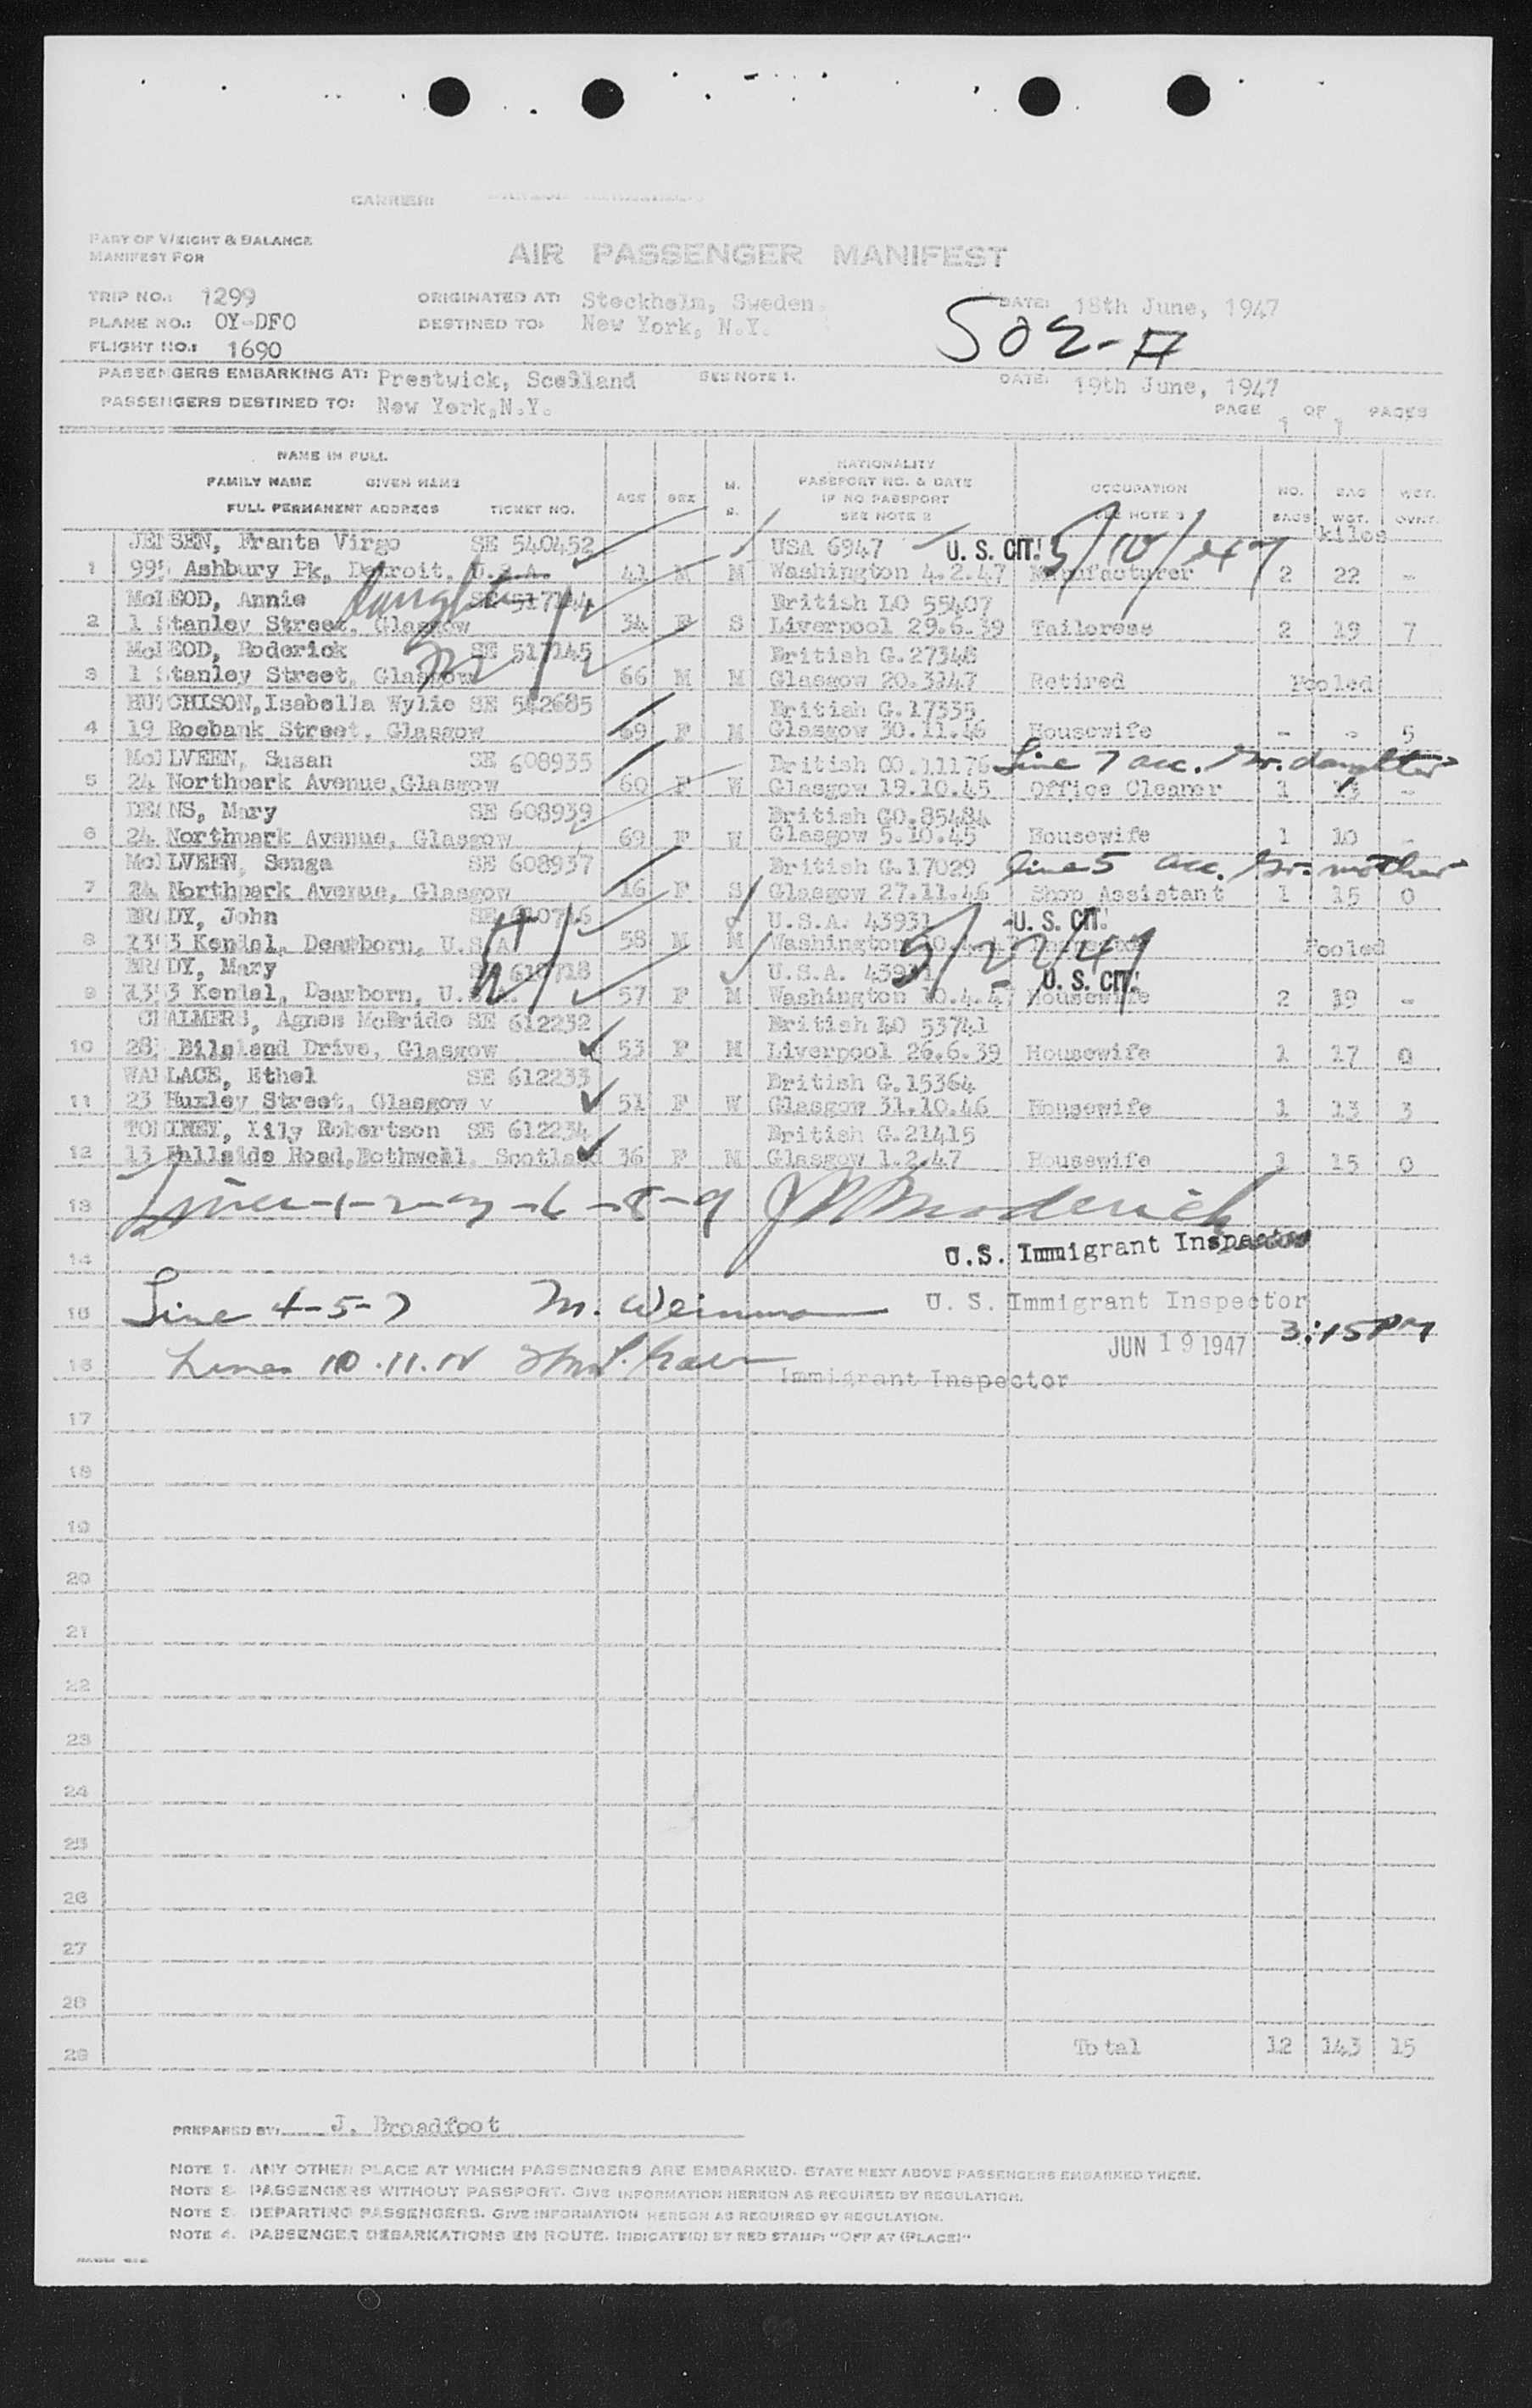 CARRIER:
PART OF WEIGHT & BALANCE
MANIFEST FOR
AIR PASSENGER MANIFEST
TRIP NO.: 1299 ORIGINATED AT: Stockholm, Sweden. DATE: 18th June, 1947
PLANE NO.: OY-DFO DESTINED TO: New York, N.Y.
FLIGHT NO.: 1690
PASSENGERS EMBARKING AT: Prestwick, Scotland SEE NOTE 1. DATE: 19th June, 1947
PASSENGERS DESTINED TO: New York,N.Y. PAGE 1 OF 1 PAGES
NAME IN FULL
FAMILY NAME GIVEN NAME
FULL PERMANENT ADDRESS TICKET NO. AGE SEX M. S. NATIONALITY PASSPORT NO. & DATE IF NO PASSPORT SEE NOTE 2 OCCUPATION SEE NOTE 3 NO. BAGS BAG WGT. WGT. OVNT.
kilos
JENSEN, Frants Virgo SE 540452 USA 6947 U. S. CIT. 5/10/47
1 Ashbury Pk, Detroit, U.S.A. 41 M M Washington 4.2.47 Manufacturer 2 22 -
McLEOD, Annie daughter British LO 55407
2 1 Stanley Street, Glasgow 34 F S Liverpool 29.6.39 Tailoress 2 19 7
McLEOD, Roderick SE 517145 British G.27348
3 1 Stanley Street, Glasgow 66 M M Glasgow 20.3.47 Retired Pooled
HUTCHISON,Isabella Wylie SE 542685 British G.17335
4 19 Rosebank Street, Glasgow 69 F M Glasgow 30.11.46 Housewife - - 5
McILVEEN, Susan SE 608935 British CO.11176 Line 7 acc. Gr. daughter
5 24 Northpark Avenue,Glasgow 60 F W Glasgow 19.10.45 Office Cleaner 1 13 -
DEANS, Mary SE 608939 British CO.85484
6 24 Northpark Avenue, Glasgow 69 F W Glasgow 5.10.45 Housewife 1 10 -
McILVEEN, Senga SE 608937 British G.17029 Line 5 acc. Gr. mother
7 24 Northpark Avenue, Glasgow 16 F S Glasgow 27.11.46 Shop Assistant 1 15 0
BRADY, John U.S.A. 43931 U. S. CIT. 5/22/47
8 Kendal, Dearborn, U.S.A. 58 M M Washington Pooled
BRADY, Mary U.S.A. U. S. CIT.
9 Kendal, Dearborn, U.S.A. 57 F M Washington 10.4.47 Housewife 2 19 -
CHALMERS, Agnes McBride SE 612232 British LO 53741
10 Bilsland Drive, Glasgow 53 F M Liverpool 26.6.39 Housewife 1 17 0
WALLACE, Ethel SE 612233 British G.15364
11 23 Huxley Street, Glasgow v 51 F W Glasgow 31.10.46 Housewife 1 13 3
Lily Robertson SE 612234 British G.21415
12 13 Fallside Road,Bothwell, Scotland 36 F M Glasgow 1.2.47 Housewife 1 15 0
13 Lines-1-2-3-6-8-9
14 U.S. Immigrant Inspector
15 Line 4-5-7 M. Weinman U. S. Immigrant Inspector
JUN 19 1947 3:15PM
16 Lines 10.11.12 Immigrant Inspector
17
18
19
20
21
22
23
24
25
26
27
28
29 Total 12 143 15
502-A
PREPARED BY: J. Broadfoot
NOTE 1. ANY OTHER PLACE AT WHICH PASSENGERS ARE EMBARKED. STATE NEXT ABOVE PASSENGERS EMBARKED THERE.
NOTE 2. PASSENGERS WITHOUT PASSPORT. GIVE INFORMATION HEREON AS REQUIRED BY REGULATION.
NOTE 3. DEPARTING PASSENGERS. GIVE INFORMATION HEREON AS REQUIRED BY REGULATION.
NOTE 4. PASSENGER DEBARKATIONS EN ROUTE. INDICATE(D) BY RED STAMP: "OFF AT (PLACE)"